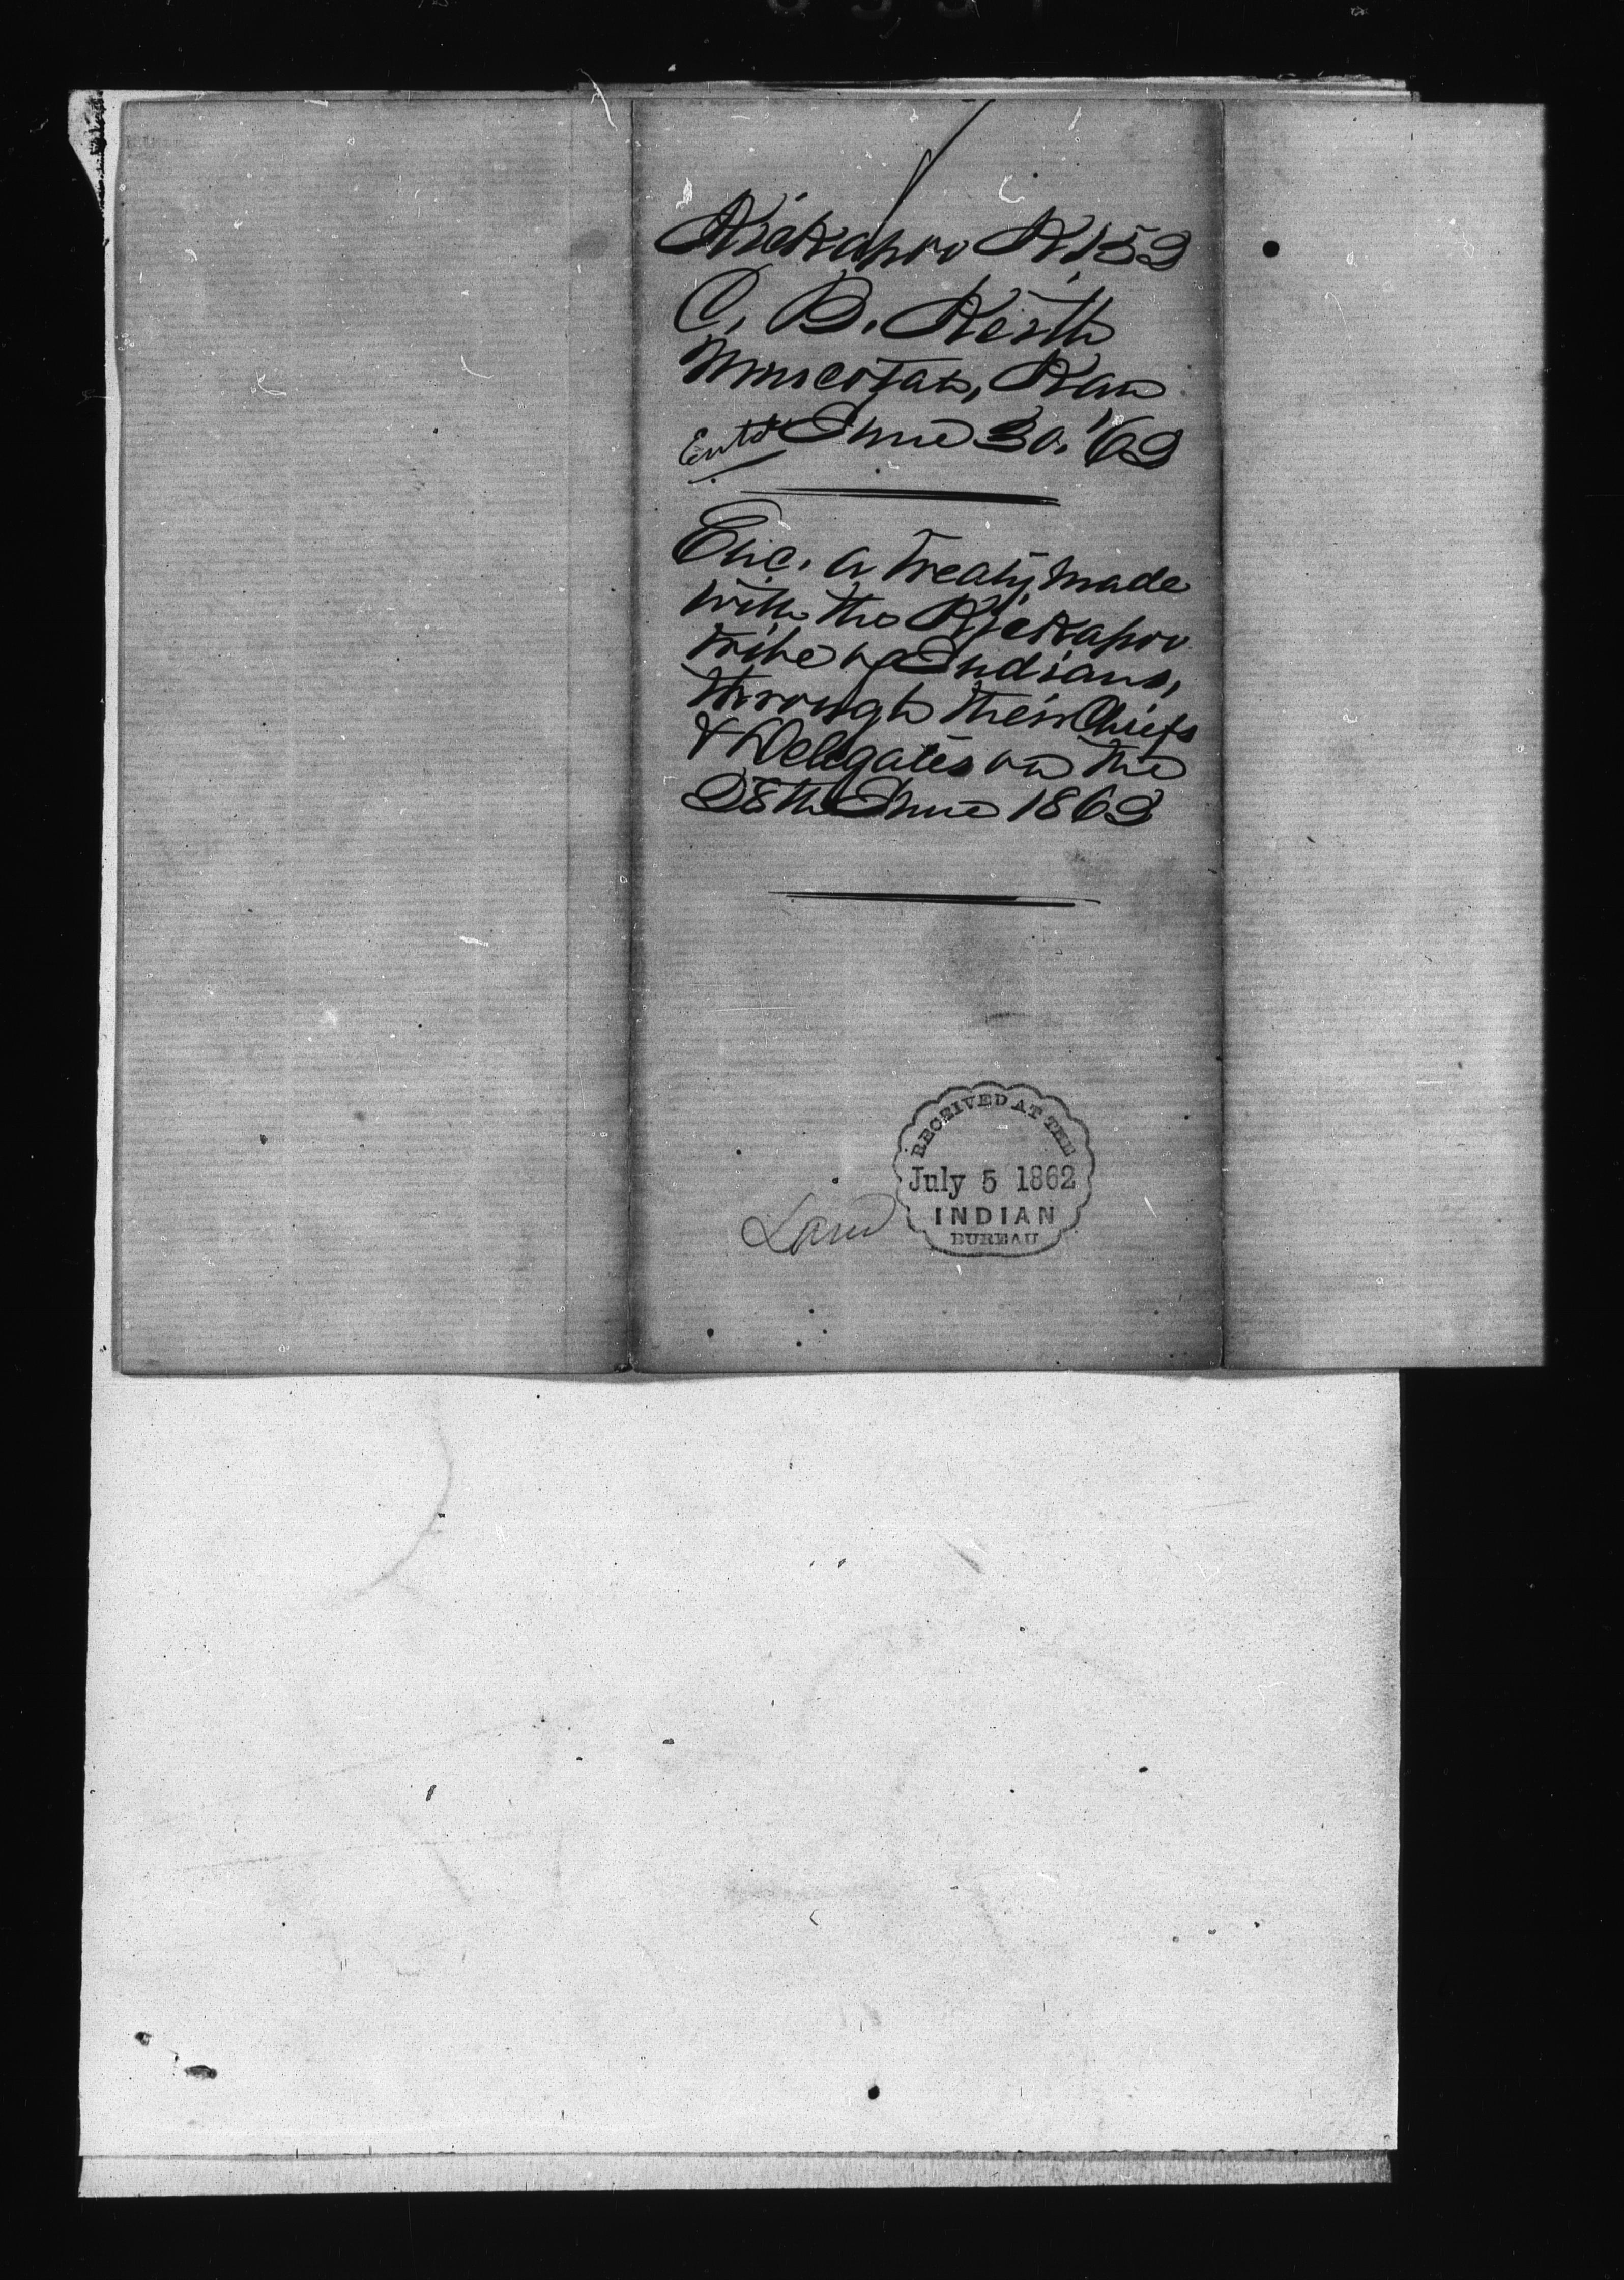 Kickapoo K.152
C. B. Keith
Muscotah, Kan
Entd June 30. '62
Enc. a treaty, made
with the Kickapoo
tribe of Indians,
through their Chiefs
& Delegates on the
28th June 1862
RECEIVED AT THE
July 5 1862
INDIAN
BUREAU
Land